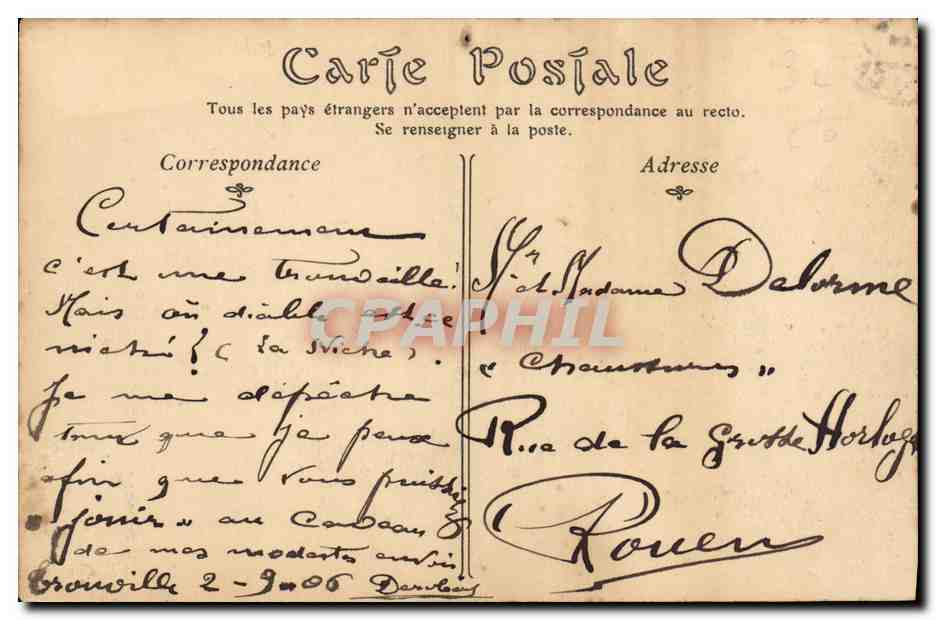 Carte Postale
Tous les pays étrangers n'acceptent par la correspondance au recto.
Se renseigner à la poste.
Correspondance
Certainement
c'est une trouvaille!
Mais où diable est-ce
niché? (La Niche).
Je me dépêche
tant que je peux
afin que vous puissiez
"jouir" au
de mes modestes envois
Trouville 2-9-06
Adresse
Mr et Madame Delorme
"Chaussures"
Rue de la Grosse Horloge
Rouen
CPAPHIL